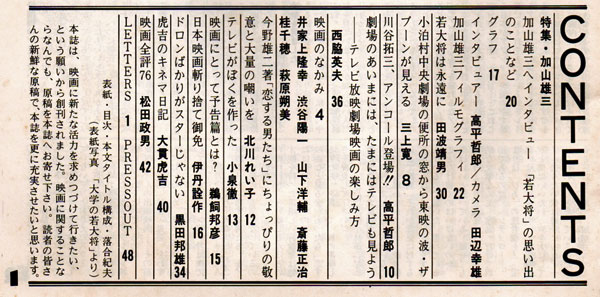 CONTENTS
特集・加山雄三
加山雄三へインタビュー 「若大将」の思い出
のことなど 20
グラフ 17
インタビュアー 高平哲郎/カメラ 田辺幸雄
加山雄三フィルモグラフィ 22
若大将は永遠に 田波靖男 30
小泊村中央劇場の便所の窓から東映の波・ザ
ブーンが見える 三上寛 8
川谷拓三、アンコール登場!! 高平哲郎 10
劇場のあいまには、たまにはテレビも見よう
──テレビ放映劇場映画の楽しみ方
西脇英夫 36
映画のなかみ 4
井家上隆幸 渋谷陽一 山下洋輔 斎藤正治
桂千穂 萩原朔美
今野雄二著『恋する男たち』にちょっぴりの敬
意と大量の嘲いを 北川れい子 12
テレビがぼくを作った 小泉徹 13
映画にとって予告篇とは? 鵜飼邦彦 15
日本映画斬り捨て御免 伊丹詮作 16
ドロンばかりがスターじゃない 黒田邦雄 34
虎吉のキネマ日記 大貫虎吉 40
映画全評76 松田政男 42
LETTERS 1 PRESSOUT 48
表紙・目次・本文タイトル構成・落合紀夫
(表紙写真 「大学の若大将」より)
本誌は、映画に新たな活力を求めつづけて行きたい、
という願いから創刊されました。映画に関することな
らなんでも、原稿を本誌へお寄せ下さい。読者の皆さ
んの新鮮な原稿で、本誌を更に充実させたいと思います。
1